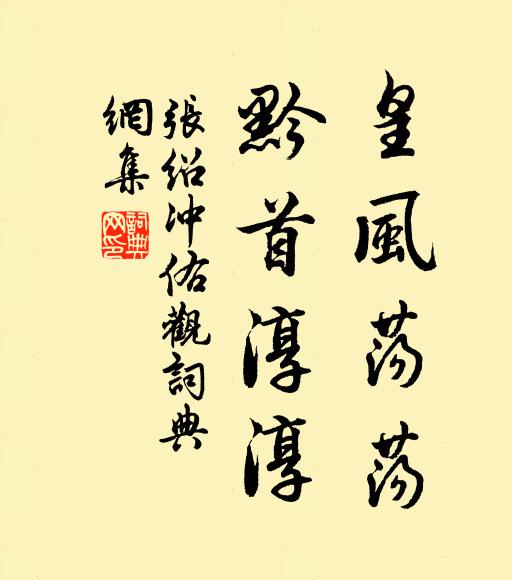 皇風蕩蕩
黔首淳淳
張紹沖佑觀詞典
網集
詞典
网印